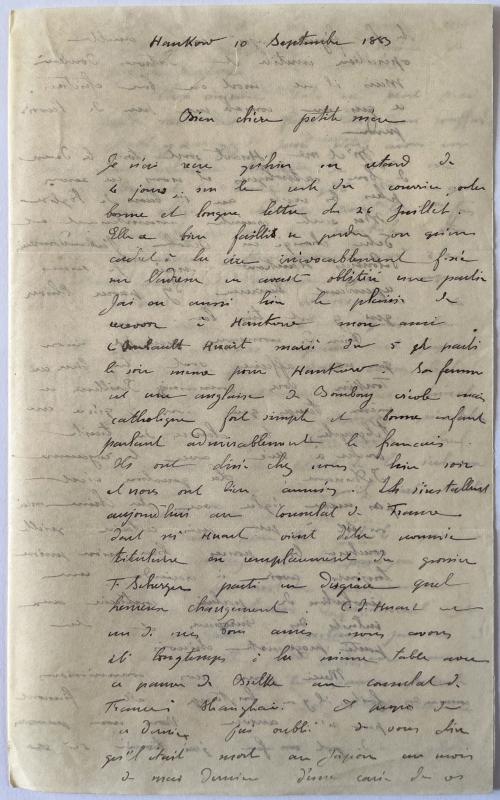 Hankow 10 Septembre 1883
Bien chère petite mère
Je n'ai reçu qu'hier en retard de
le jour, sur le reste du courrier votre
bonne et longue lettre du 26 Juillet.
Elle a bien faillit se perdre car qu'un
cachet à la cire irrévocablement fixé
sur l'adresse en avait oblitéré une partie
J'ai eu aussi hier le plaisir de
recevoir à Hankow mon ami
Huart marié du 5 et parti
le soir même pour Hankow. Sa femme
est une anglaise de Bombay créole mais
catholique fort simple et bonne enfant
parlant admirablement le français.
Ils ont diné chez nous hier soir
et nous ont bien amusés. Ils s'installent
aujourd'hui au Consulat de France
dont Mr Huart vient d'être nommé
titulaire en remplacement du
F. Scherzer parti en disgrâce quel
heureux changement. C. I. Huart est
un de mes bons amis nous avons
été longtemps à la même table avec
ce pauvre de Bielke au consulat de
France à Shanghai. Et à propos de
ce dernier j'ai oublié de vous dire
qu'il était mort au Japon au mois
de mars dernier d'une carie des os